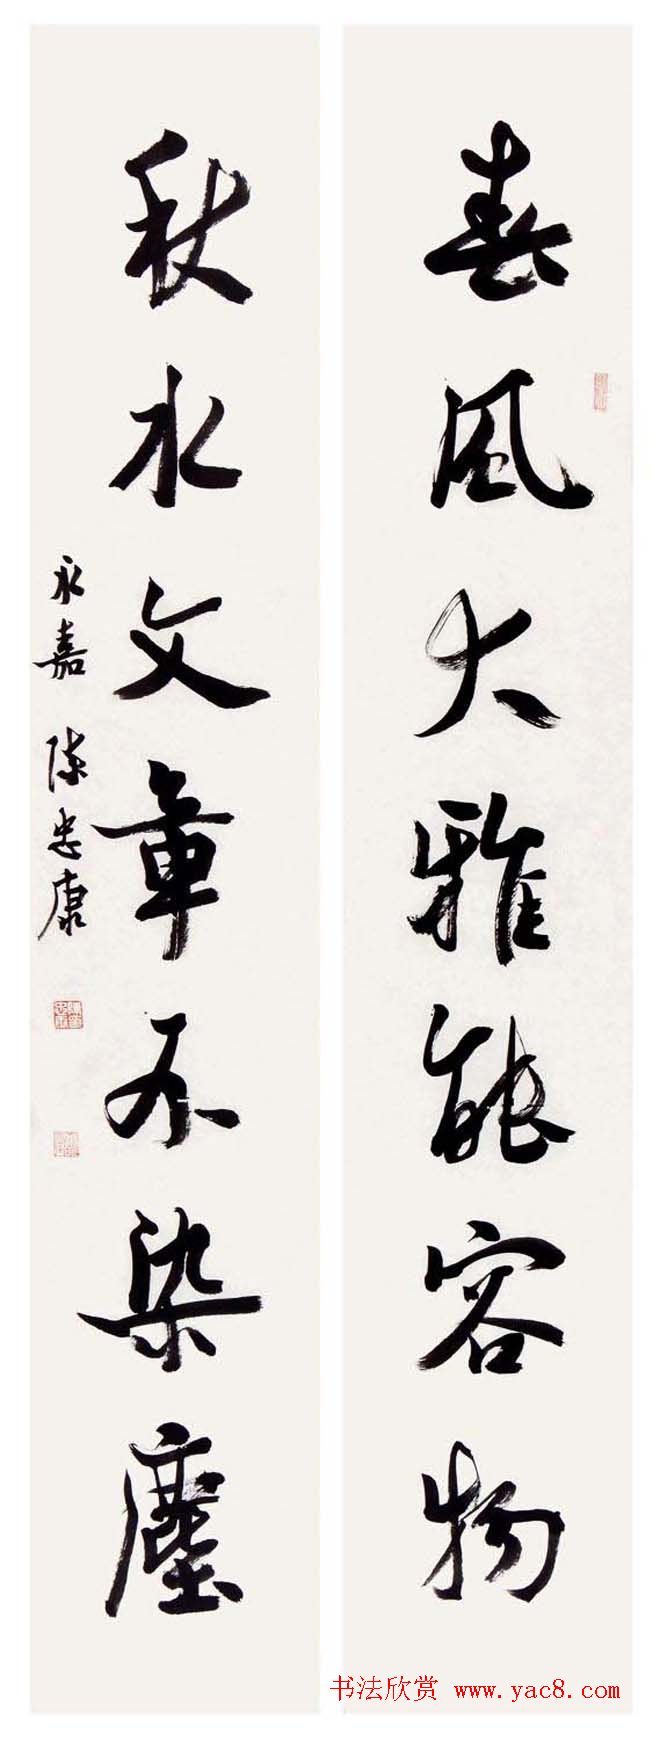 春風大雅能容物
秋水文章不染塵
永嘉陳忠康
书法欣赏 www.yac8.com